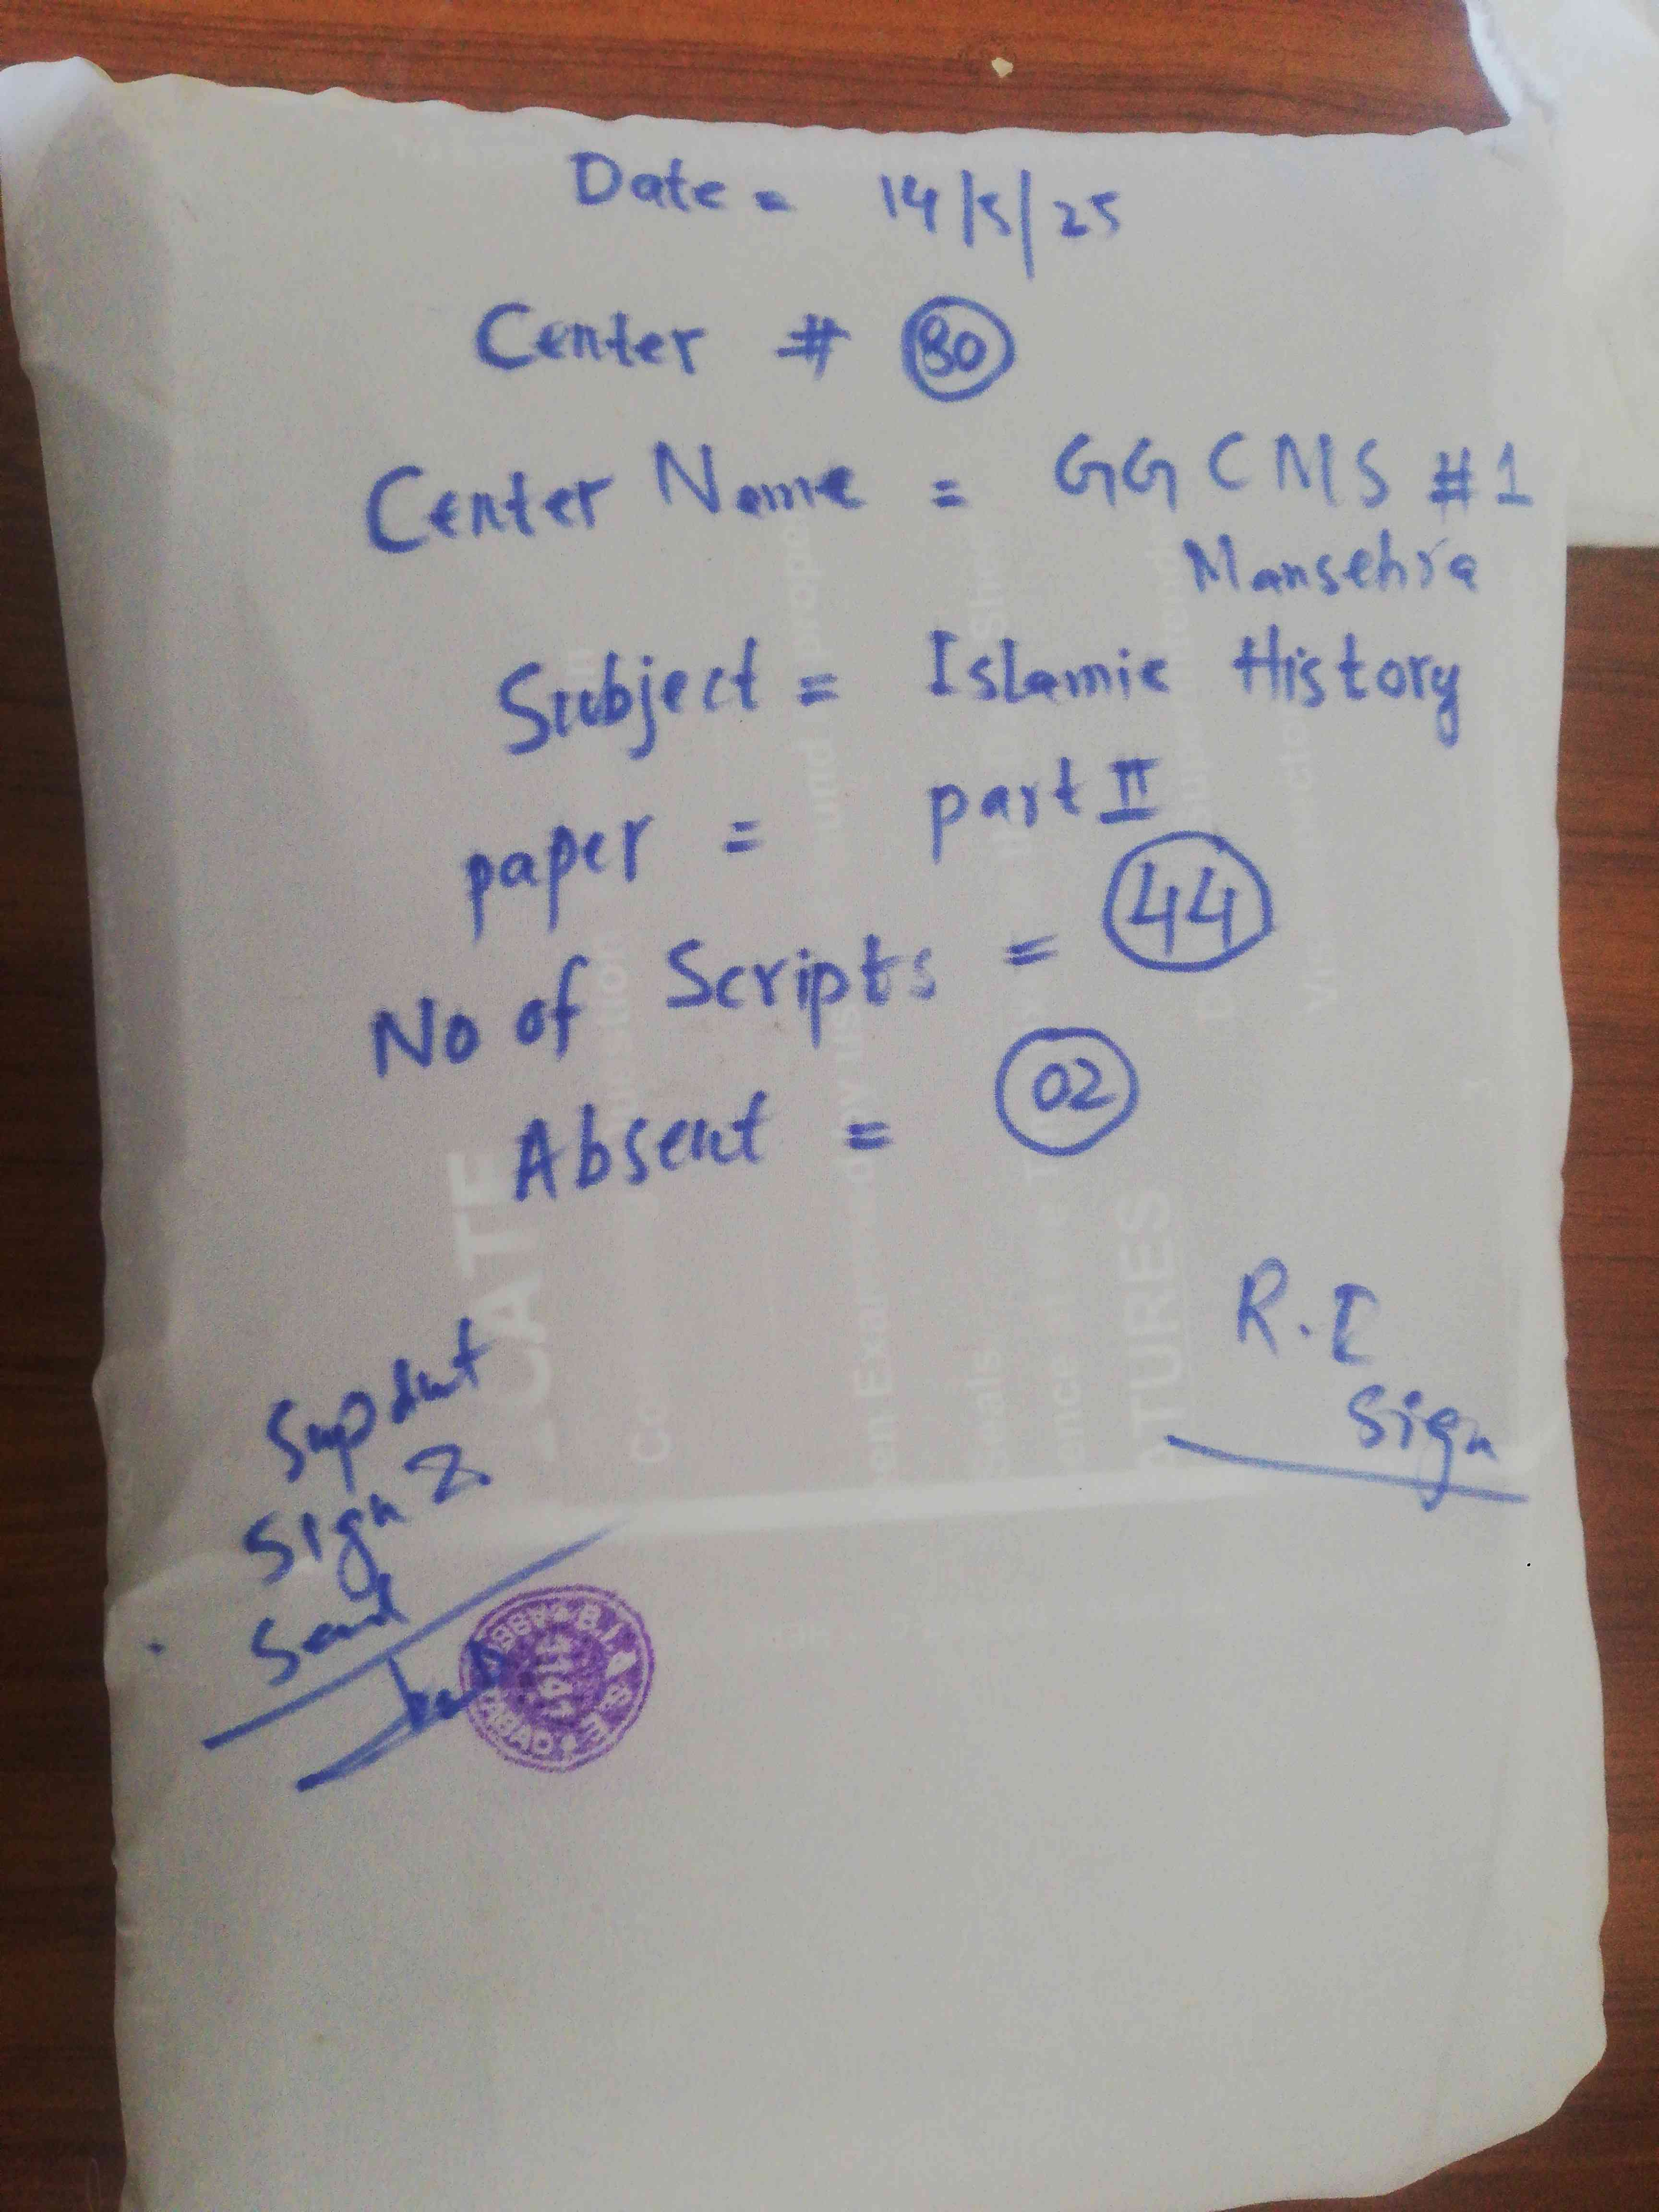 Date = 14/5/25
Center # 80
Center Name = GGCMS #1
Mansehra
Subject = Islamic History
paper = part II
No of Scripts = 44
Absent = 02
R.I
Sign
Supdnt
Sign &
Seal
B.I. & S.E.
1141
CATE
ATURES